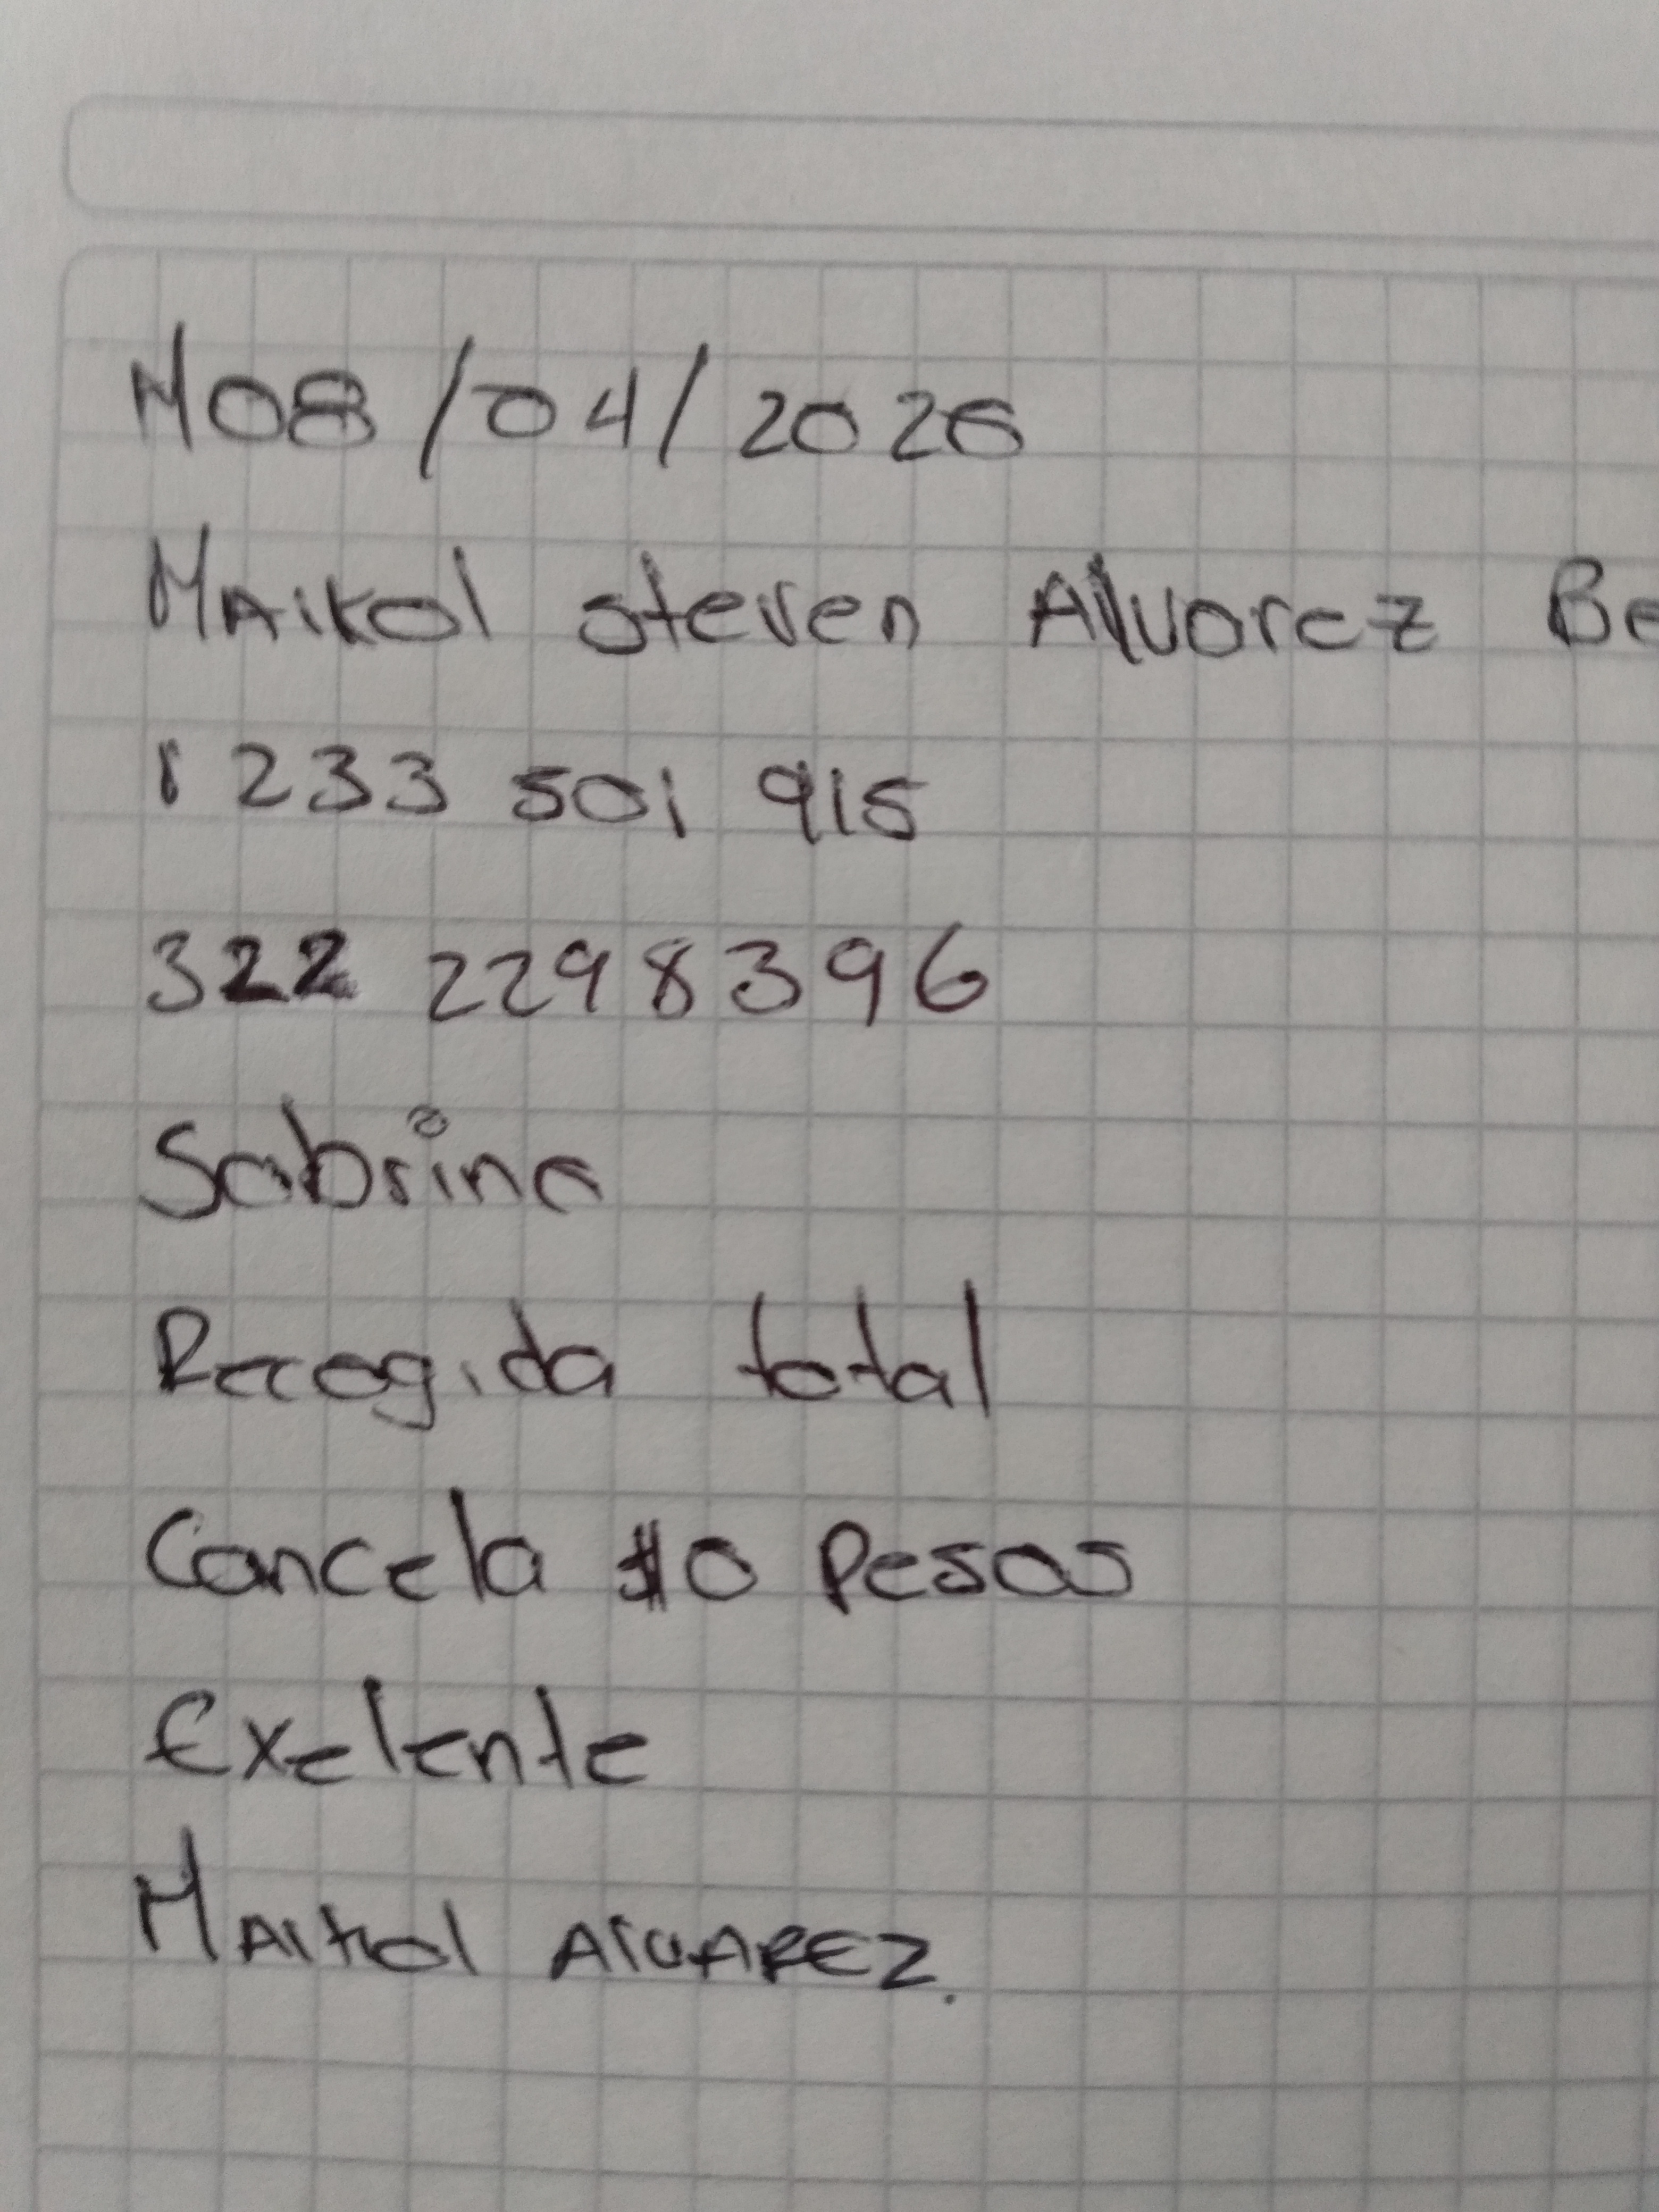 M08/04/2026
MAikol steven Alvarez Be
1 233 501 915
322 2298396
Sabrina
Recogida total
Cancela $0 Pesos
Exelente
MAikol AlvAREZ.